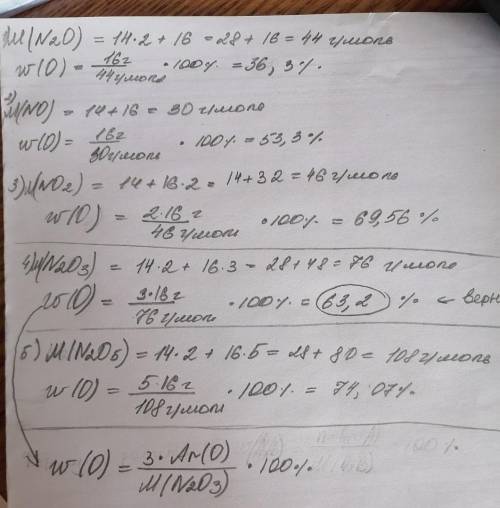 1) M(N2O) = 14·2 + 16 = 28 + 16 = 44 г/моль
w(O) = 16г / 44г/моль · 100% = 36,3%
2) M(NO) = 14 + 16 = 30 г/моль
w(O) = 16г / 30г/моль · 100% = 53,3%
3) M(NO2) = 14 + 16·2 = 14 + 32 = 46 г/моль
w(O) = 2·16 г / 46 г/моль · 100% = 69,56 %
4) M(N2O3) = 14·2 + 16·3 = 28 + 48 = 76 г/моль
w(O) = 3·16г / 76 г/моль · 100% = 63,2 % ←
5) M(N2O5) = 14·2 + 16·5 = 28 + 80 = 108 г/моль
w(O) = 5·16 г / 108 г/моль · 100% = 74,07%
w(O) = 3·Ar(O) / M(N2O3) · 100%